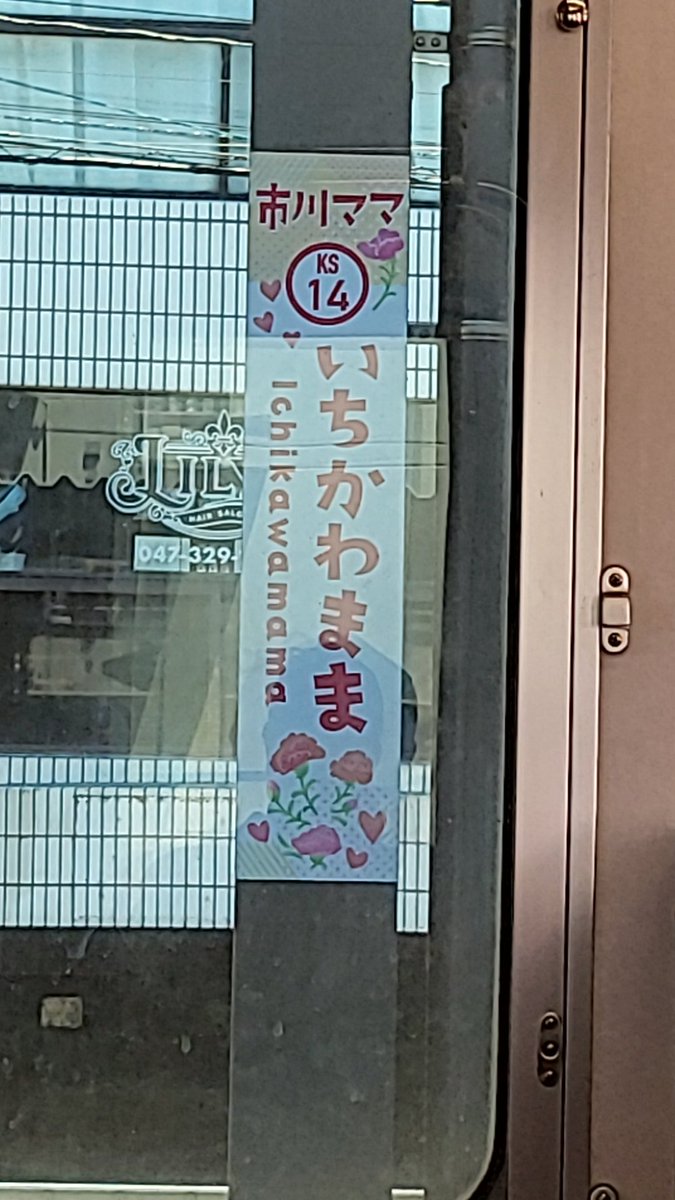 市川ママ
KS
14
いちかわまま
Ichikawamama
LILY
HAIR SALO
047-329-